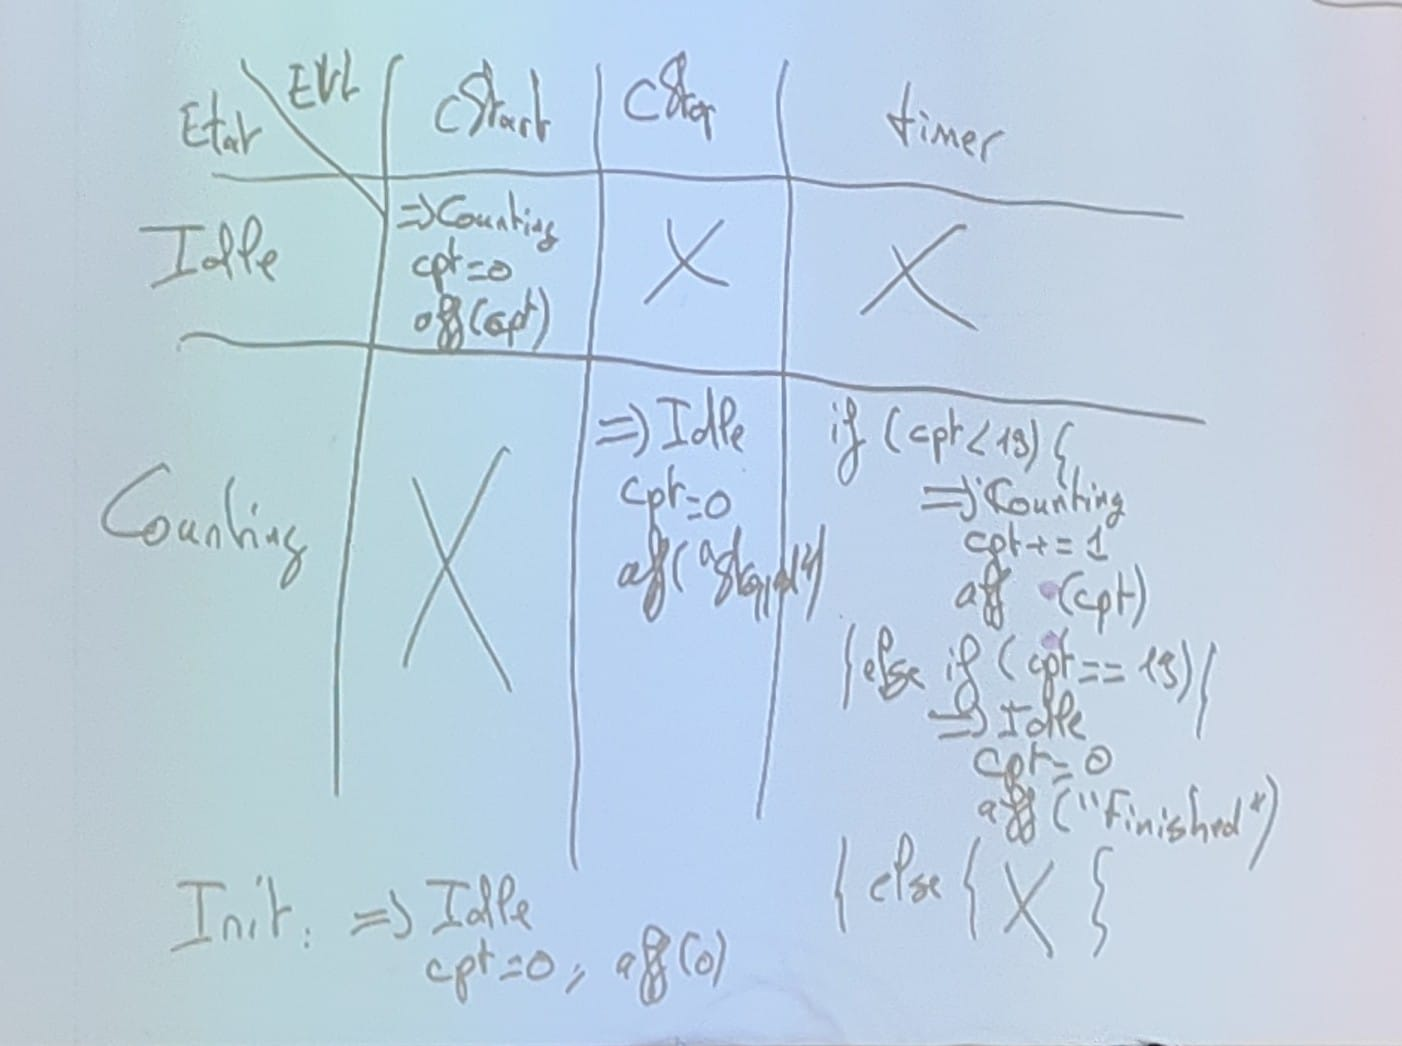 Etat Evt cStart cStop timer
Idle
=> Counting
cpt=0
aff(cpt)
X
X
Counting
X
=> Idle
cpt=0
aff("Stopped")
if (cpt<19) {
=> Counting
cpt+=1
aff (cpt)
} else if (cpt==19) {
=> Idle
cpt=0
aff("Finished")
} else { X }
Init: => Idle
cpt=0, aff(0)